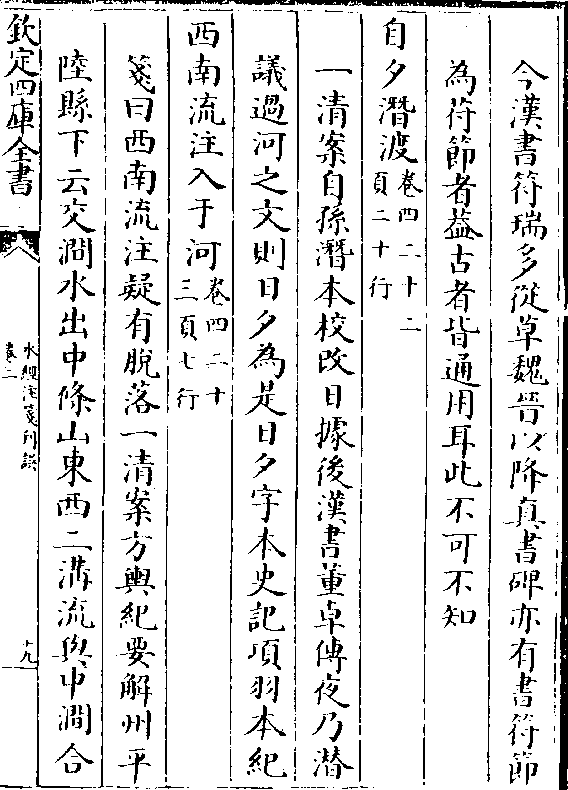 今漢書符瑞多從草魏晉以降真書碑亦有書符節
為苻節者葢古者皆通用耳此不可不知
自夕潛渡卷四二十二頁二十行
一清案自孫潛本校改日據後漢書董卓傳夜乃潜
議過河之文則日夕為是日夕字本史記項羽本紀
西南流注入于河卷四二十三頁七行
箋曰西南流注疑有脫落一清案方輿紀要解州平
陸縣下云交澗水出中條山東西二溝流與中澗合
欽定四庫全書
水經注箋刋誤
卷二
十九